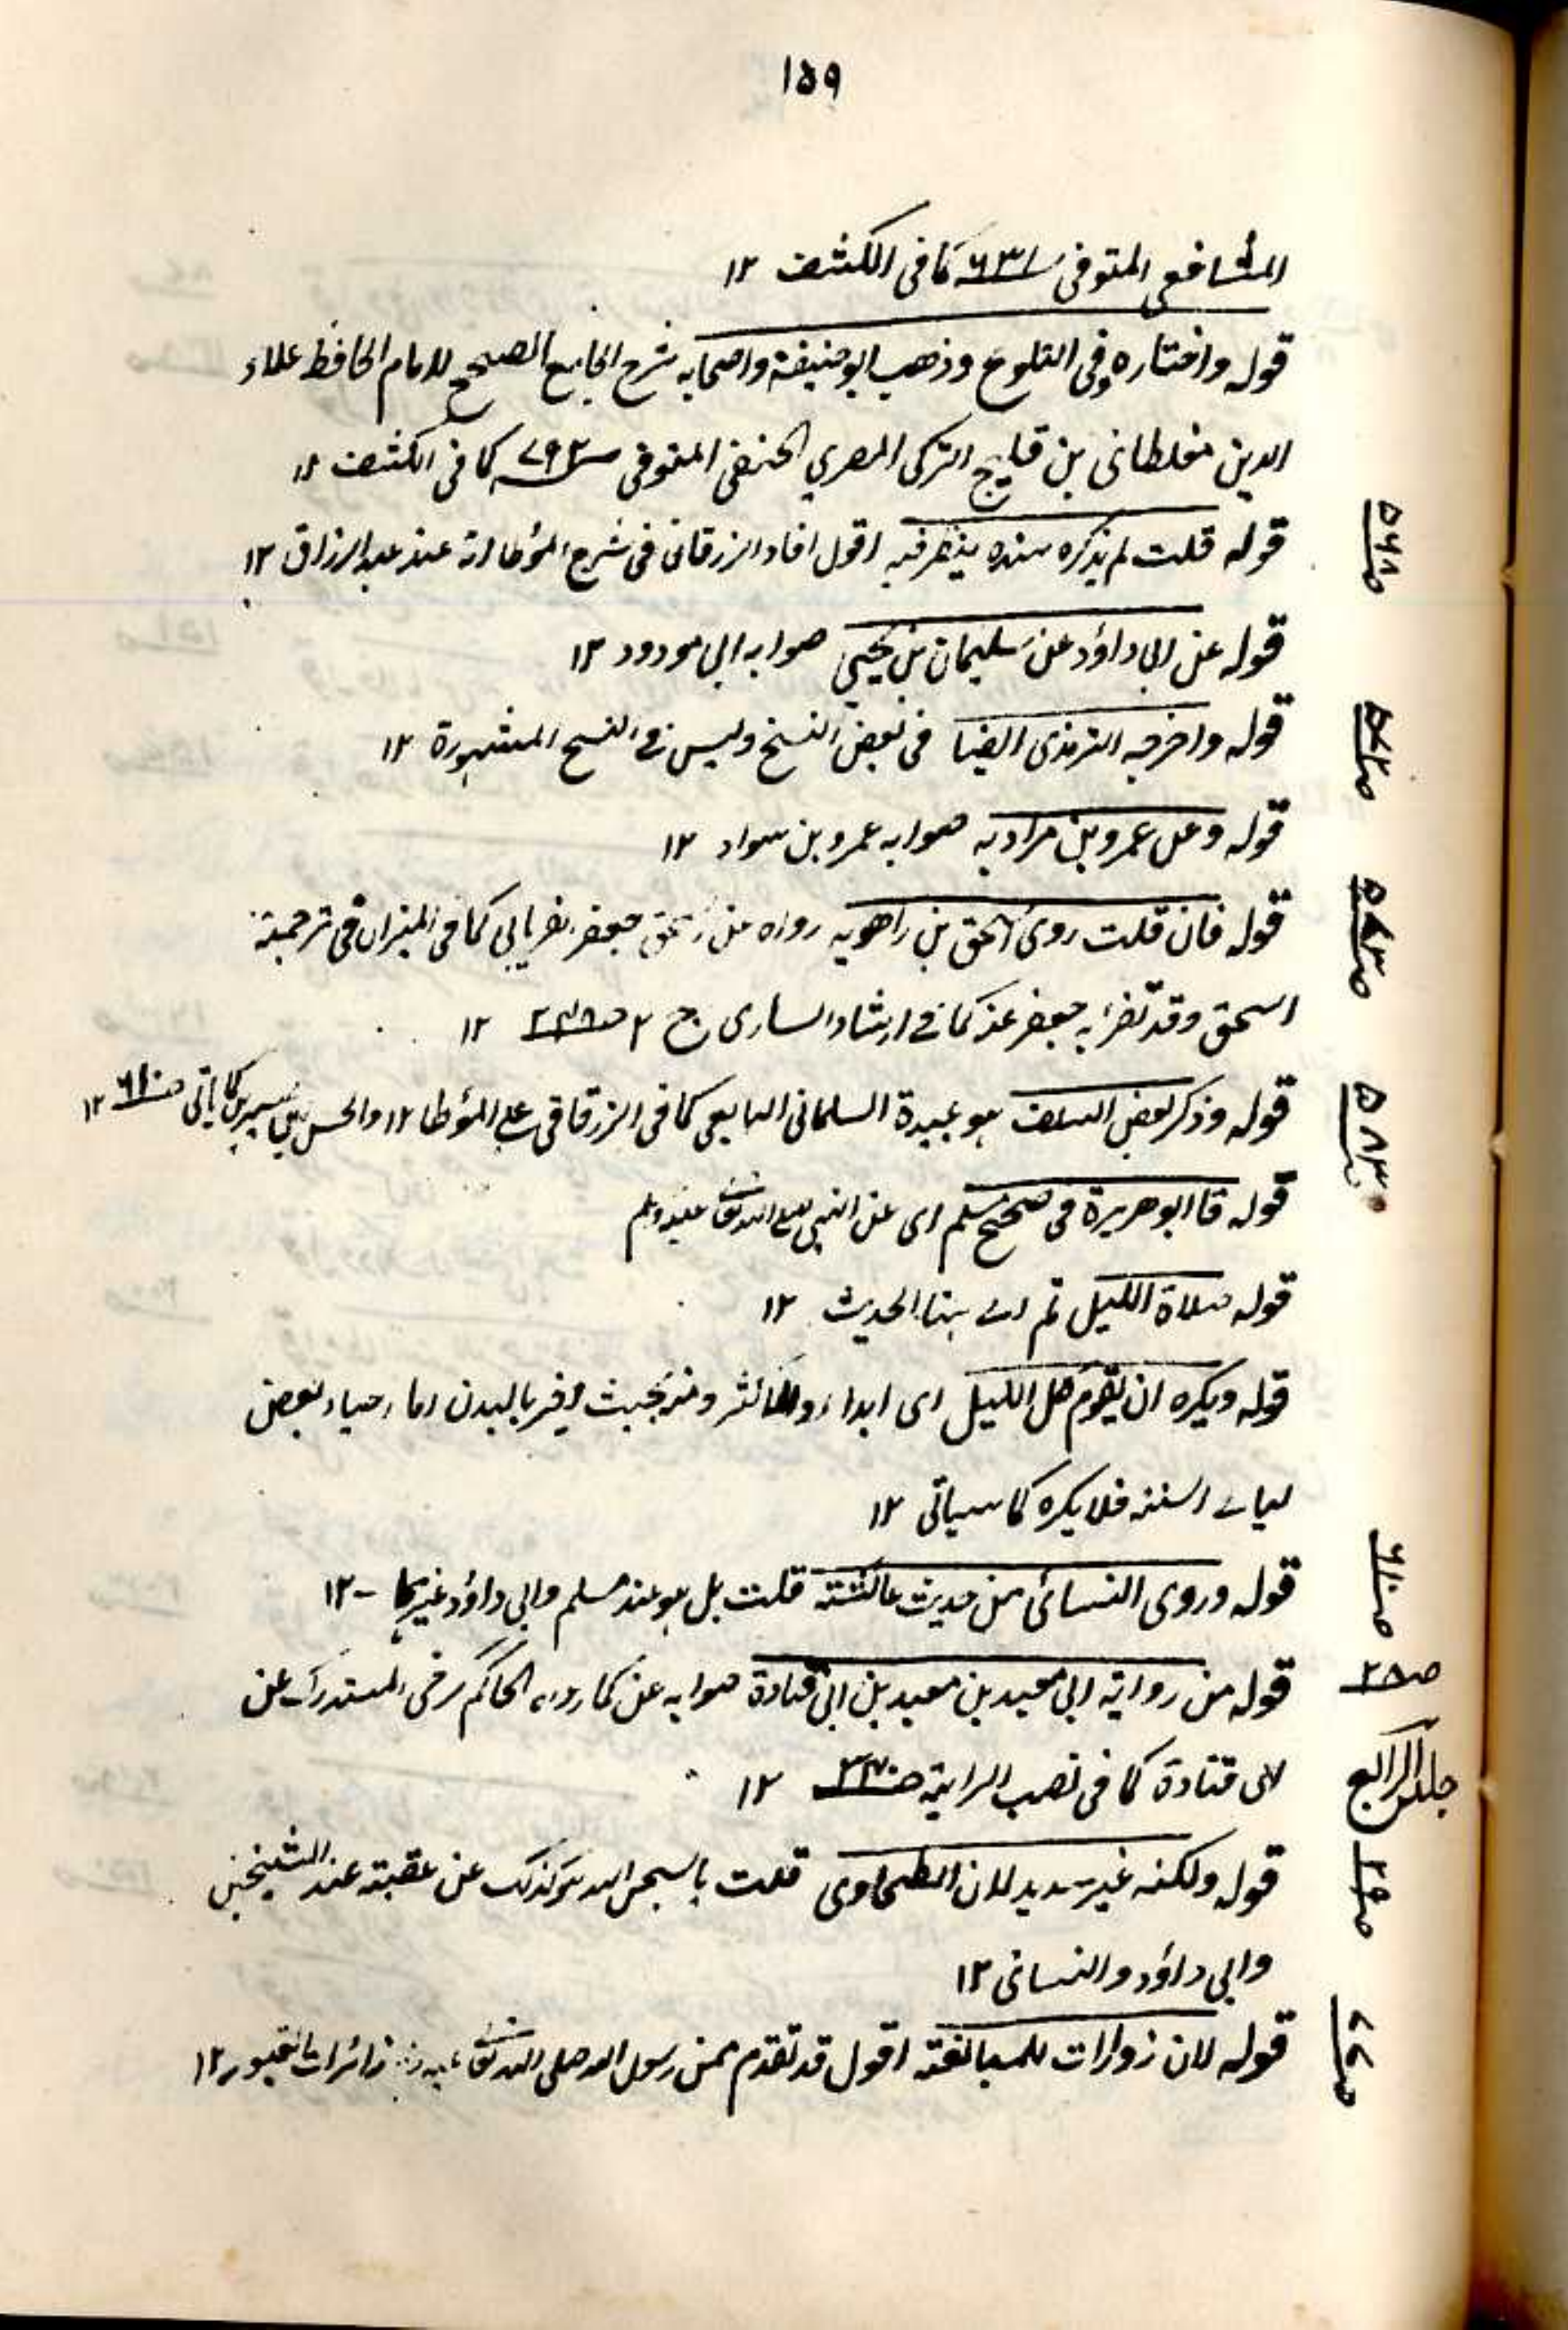 ١٥٩
الشافعي المتوفى سنة ٦٣١ كما في الكشف ١٢
قوله واختاره وفي التلوع وذهب ابو حنيفة واصحابه شرح الجامع الصحيح للامام الحافظ علاء
الدين مغلطائى بن قليج التركى المصري الحنفي المتوفى سنة ٧٩٢ كما في الكشف ١٢
ص٥٦٨
قوله قلت لم يذكره سنده ينظر فيه اقول افاد الزرقاني في شرح المؤطا انه عند عبد الرزاق ١٢
قوله عن ابى داؤد عن سليمان بن يحيى صوابه ابى مودود ١٢
ص٥٧٢
قوله واخرجه الترمذى ايضا فى بعض النسخ وليس في النسخ المشهورة ١٢
قوله وعن عمرو بن مراد به صوابه عمرو بن سواد ١٢
ص٥٧٣
قوله فان قلت روى اسحق بن راهويه رواه عن اسحق جعفر الفريابي كما في الميزان فى ترجمة
اسحق وقد تفرد به جعفر عنه كما في ارشاد السارى ج ٢ ص٢٤٦ ١٢
ص٥٨٣
قوله وذكر بعض السلف هو عبيدة السلمانى التابعى كما فى الزرقاني على المؤطا ١٢ والحسن بن سيرين كما يأتى ص٦١٠ ١٢
قوله قا ابو هريرة فى صحيح مسلم اى عن النبى صلى الله تعالى عليه وسلم
قوله صلاة الليل تم اے بهنا الحديث ١٢
قوله ويكره ان يقوم كل الليل اى ابدا او وحيث يضر بالبدن اما احياء بعض
ليالے السنة فلا يكره كما سياتى ١٢
ص٦١٠
قوله وروى النسائى من حديث عائشة قلت بل هو عند مسلم وابى داؤد وغيرهما - ١٢
ص٢٨
قوله من رواية ابى معبد بن معبد بن ابى قتادة صوابه عن كما رواه الحاكم فى المستدرك عن
ابى قتادة كما فى نصب الراية ص٣٤٧ ١٢
جلد الرابع
ص٢٩
قوله ولكنه غير سديد لان الطحاوى قلت كذلك عن عقبة عند الشيخين
وابى داؤد والنسائى ١٢
ص٧٤
قوله لان زوارات للمبالغة اقول قد تقدم لعن رسول الله صلى الله تعالى عليه زائرات القبور ١٢